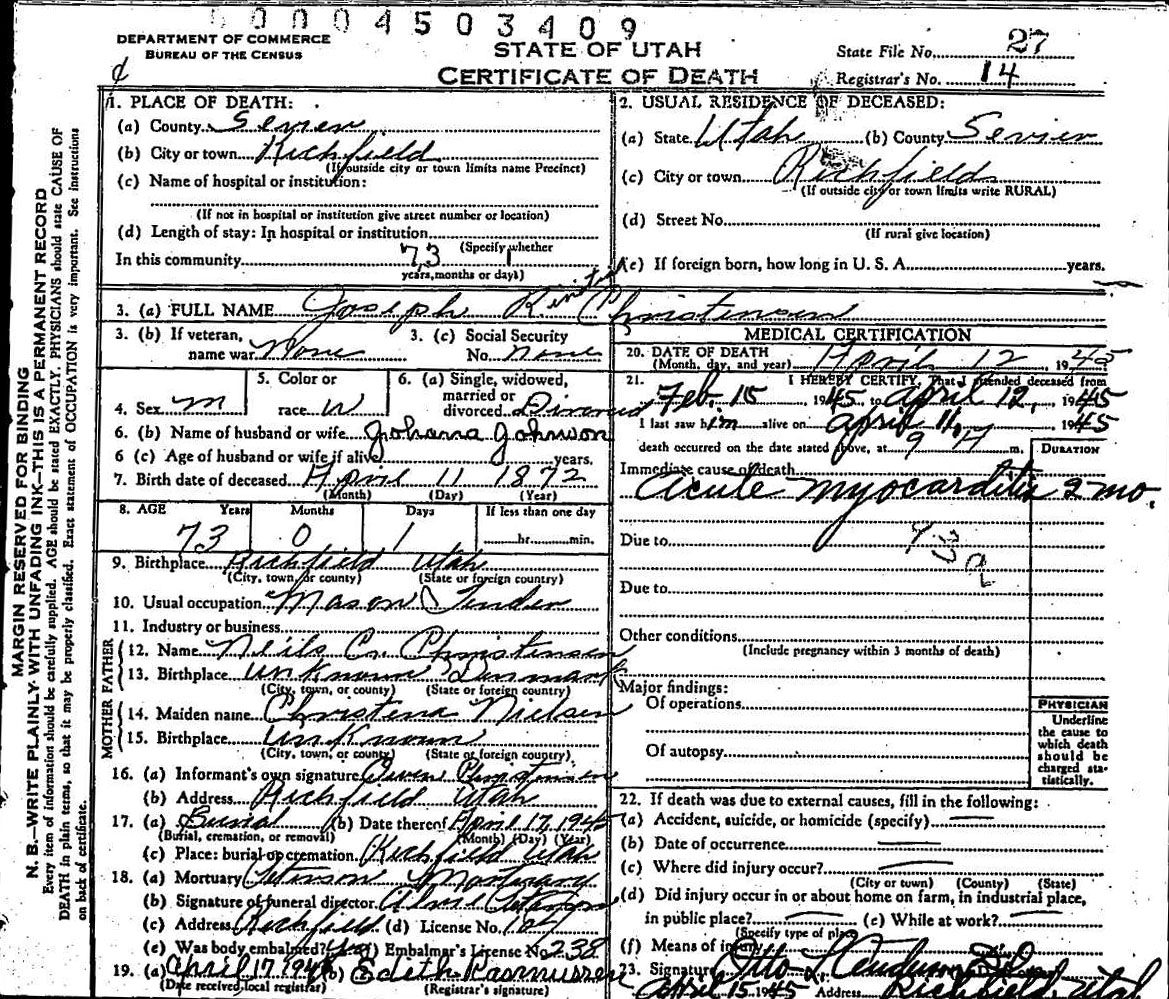 0004503409
DEPARTMENT OF COMMERCE
BUREAU OF THE CENSUS
STATE OF UTAH
CERTIFICATE OF DEATH
State File No. 27
Registrar's No. 14
MARGIN RESERVED FOR BINDING
N. B.—WRITE PLAINLY WITH UNFADING INK—THIS IS A PERMANENT RECORD
Every item of information should be carefully supplied. AGE should be stated EXACTLY. PHYSICIANS should state CAUSE OF
DEATH in plain terms, so that it may be properly classified. Exact statement of OCCUPATION is very important. See instructions
on back of certificate.
1. PLACE OF DEATH:
(a) County Sevier
(b) City or town Richfield
(If outside city or town limits name Precinct)
(c) Name of hospital or institution:
(If not in hospital or institution give street number or location)
(d) Length of stay: In hospital or institution
(Specify whether
In this community 73
years, months or days)
2. USUAL RESIDENCE OF DECEASED:
(a) State Utah (b) County Sevier
(c) City or town Richfield
(If outside city or town limits write RURAL)
(d) Street No.
(If rural give location)
(e) If foreign born, how long in U. S. A. years.
3. (a) FULL NAME Joseph Christensen
3. (b) If veteran, name war None
3. (c) Social Security No. none
4. Sex M
5. Color or race W
6. (a) Single, widowed, married or divorced Divorced
6. (b) Name of husband or wife Johana Johnson
6. (c) Age of husband or wife if alive years.
7. Birth date of deceased April 11 1872
(Month) (Day) (Year)
8. AGE Years Months Days If less than one day
73 0 1 hr. min.
9. Birthplace Richfield Utah
(City, town, or county) (State or foreign country)
10. Usual occupation Mason Tender
11. Industry or business
FATHER
12. Name Neils C. Christensen
13. Birthplace Unknown Denmark
(City, town, or county) (State or foreign country)
MOTHER
14. Maiden name Christena Nielsen
15. Birthplace Unknown
(City, town, or county) (State or foreign country)
16. (a) Informant's own signature Owen Christensen
(b) Address Richfield Utah
17. (a) Burial (b) Date thereof April 17, 1945
(Burial, cremation, or removal) (Month) (Day) (Year)
(c) Place: burial or cremation Richfield Utah
18. (a) Mortuary Peterson Mortuary
(b) Signature of funeral director
(c) Address Richfield (d) License No. 187
(e) Was body embalmed? Yes (f) Embalmar's License No. 238
19. (a) April 17 1945 (b) Edeth Rasmussen
(Date received local registrar) (Registrar's signature)
MEDICAL CERTIFICATION
20. DATE OF DEATH
(Month, day, and year) April 12 1945
21. I HEREBY CERTIFY, That I attended deceased from
Feb. 15 1945, to April 12, 1945
I last saw him alive on April 11, 1945
death occurred on the date stated above, at 9 A m.
DURATION
Immediate cause of death
Acute myocarditis 2 mo.
Due to
Due to
Other conditions
(Include pregnancy within 3 months of death)
Major findings:
Of operations
Of autopsy
PHYSICIAN
Underline
the cause to
which death
should be
charged sta-
tistically.
22. If death was due to external causes, fill in the following:
(a) Accident, suicide, or homicide (specify)
(b) Date of occurrence
(c) Where did injury occur?
(City or town) (County) (State)
(d) Did injury occur in or about home on farm, in industrial place,
in public place? (e) While at work?
(Specify type of place)
(f) Means of injury
23. Signature Otto
April 15 1945 Address Richfield, Utah